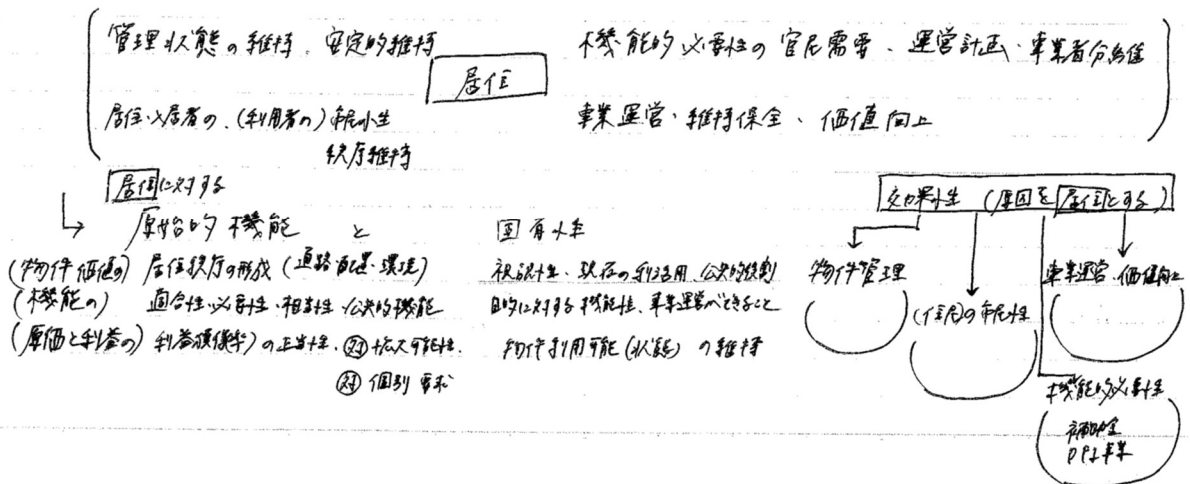 管理状態の維持、安定的維持
機能的必要性の官民需要、運営計画・事業者
居住
居住・入居者の、(利用者の)市民性
秩序維持
事業運営・維持保全、価値向上
居住に対する
原始的機能と固有性
(物件価値の)居住秩序の形成(道路配置・環境)
(機能の)適合性・必要性・相当性・公共的機能
(原価と利益の)利益損傷率)の正当性、対拡大可能性、
対個別要求
視認性・現在の利活用、公共的役割
目的に対する機能性、事業運営ができること
物件利用可能(状態)の維持
効果性(原因を居住とする)
物件管理
(住民)の市民性
事業運営・価値向上
機能的必要性
補助金
事業